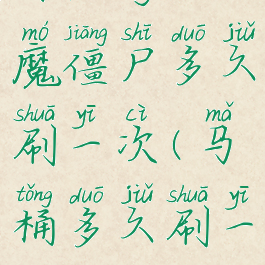 mó jiāng shī duō jiǔ
魔僵尸多久
shuā yī cì mǎ
刷一次(马
tǒng duō jiǔ shuā yī
桶多久刷一